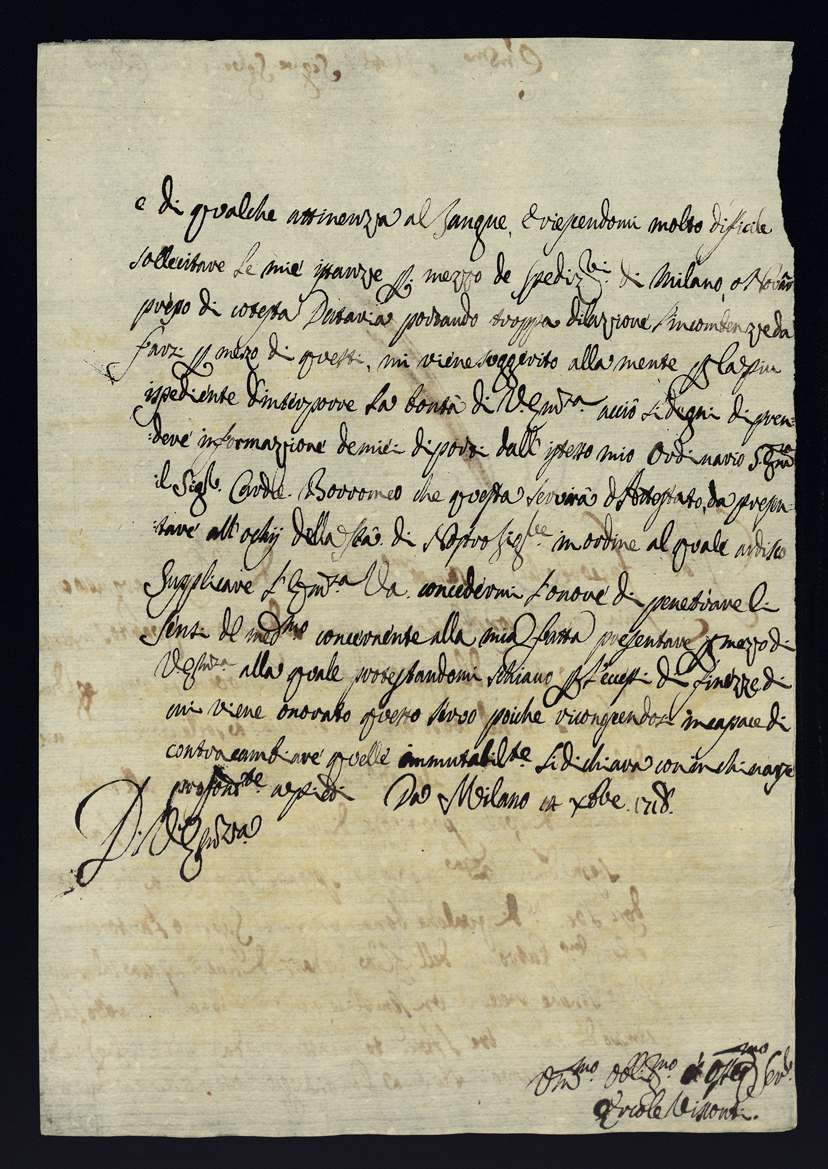 e di qualche attinenza al Sangue, E riespendomi molto difficile
sollecitare le mie istanze p mezzo de spediz.ri di Milano, o
preso di cotesta Dataria portando troppa dilazione l'incombenze da
farsi p mezo di questi, mi viene soggerito alla mente p la piu
ispediente d'interporre la bontà di V Emza acciò si degni di pren-
dere informazione de miei diporti dall' istesso mio Ordinario
il Sigr. Cardle. Borromeo che questa servirà d'Attestato, da presen-
tare all' ochij della Stà. di Nostro Sigre in ordine al quale ardisco
Supplicare l'Emza Va. concedermi l'onore di penetrare li
sensi del medmo concernente alla mia fatta presentare p mezzo di
V Emza alla quale protestandomi schiavo p l'eccessi di finezze, di
cui viene onorato questo servo poiche ricongrendosi incapace di
contracambiare quelle immutabilte si dichiara con inchinarse
profondte a piedi Da Milano 14 Xbre. 1718.
Di V Emza
Vmmo Obbmo Servre
Ercole Visconti.